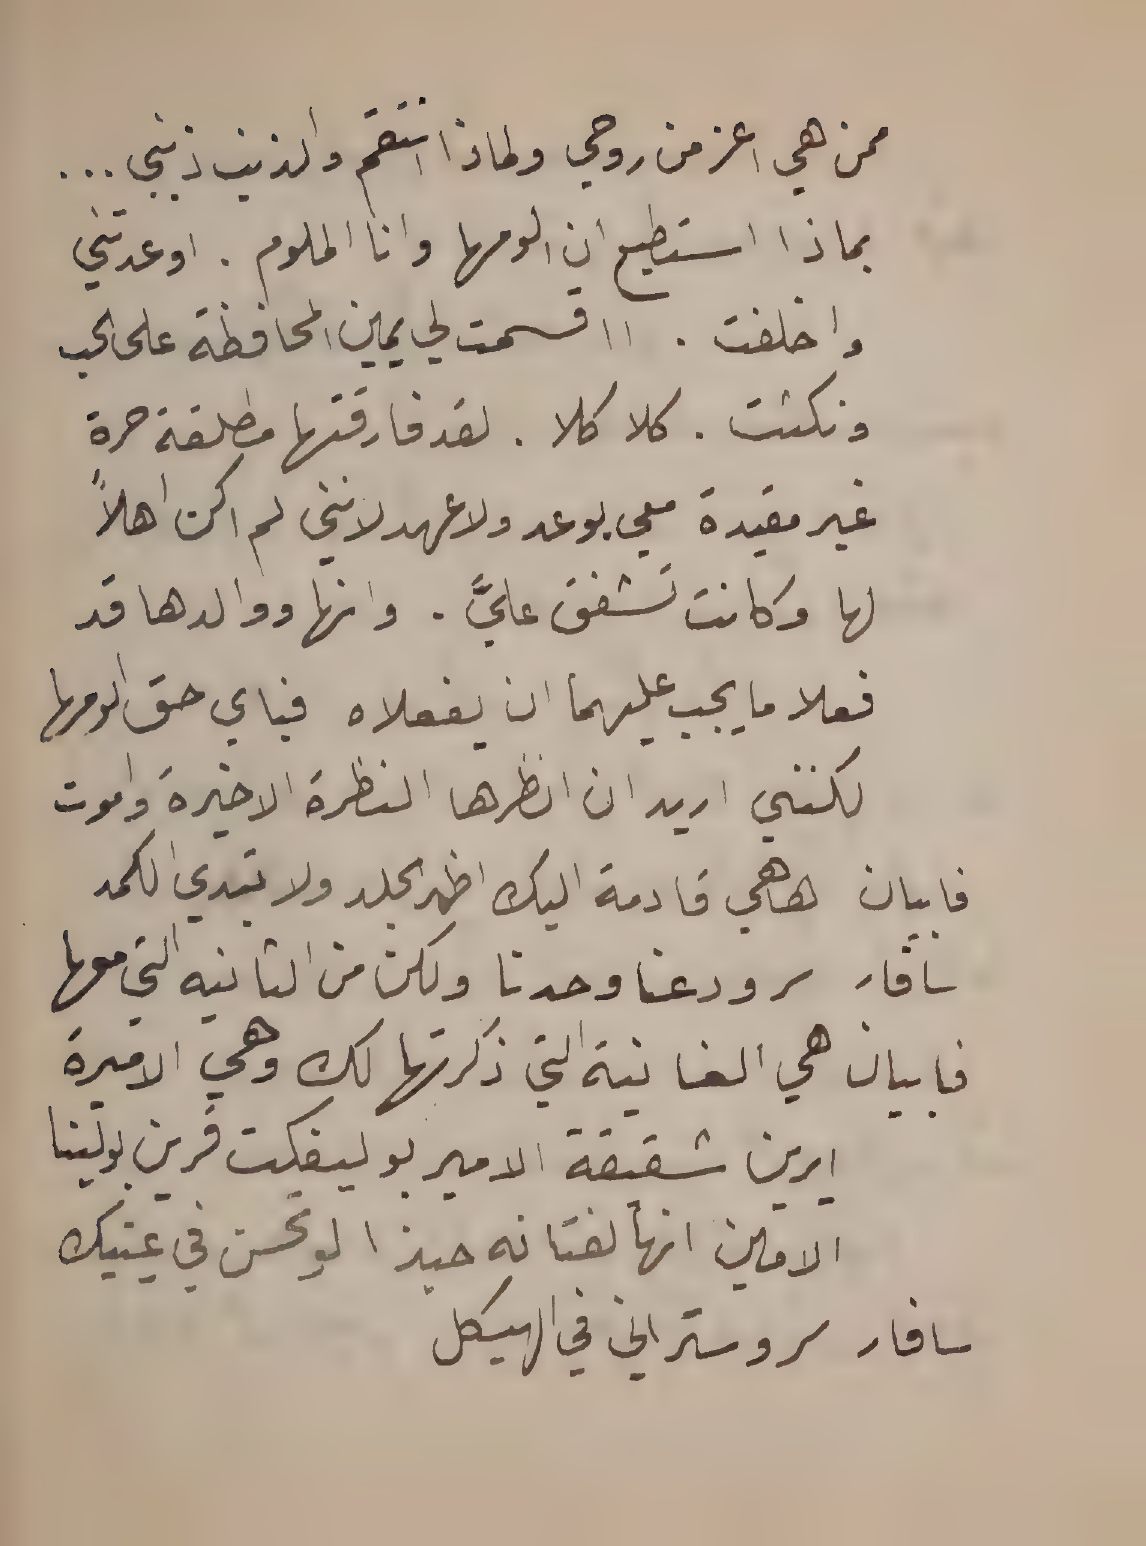 ممن هي اعز من روحي ولماذا انتقم والذنب ذنبي ...
بماذا استطيع ان الومها وانا الملوم . اوعدتني
واخلفت . ااقسمت لي يمين المحافظة على الحب
ونكثت . كلا كلا . لقد فارقتها مطلقة حرة
غير مقيدة معي بوعد ولا عهد لانني لم اكن اهلاً
لها وكانت تشفق عليَّ . وانها ووالدها قد
فعلا ما يجب عليهما ان يفعلاه فباي حق الومها
لكنني اريد ان انظرها النظرة الاخيرة واموت
فابيان هاهي قادمة اليك اظهر الجلد ولا تبدي الكمد
سافار سر ودعنا وحدنا ولكن من الثانيه التي معها
فابيان هي الغانية التي ذكرتها لك وهي الاميرة
ايرين شقيقة الامير بوليفكت قرين بولينا
الامين انها لفتانه حبذا لو تحسن في عينيك
سافار سر وستراني في الهيكل